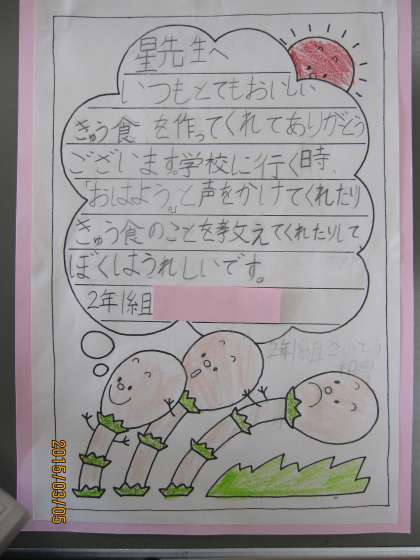 星先生へ
いつもとてもおいしい
きゅう食を作ってくれてありがとう
ございます。学校に行く時、
「おはよう。」と声をかけてくれたり
きゅう食のことを教えてくれたりして
ぼくはうれしいです。
2年1組
2年1組
2015/03/05